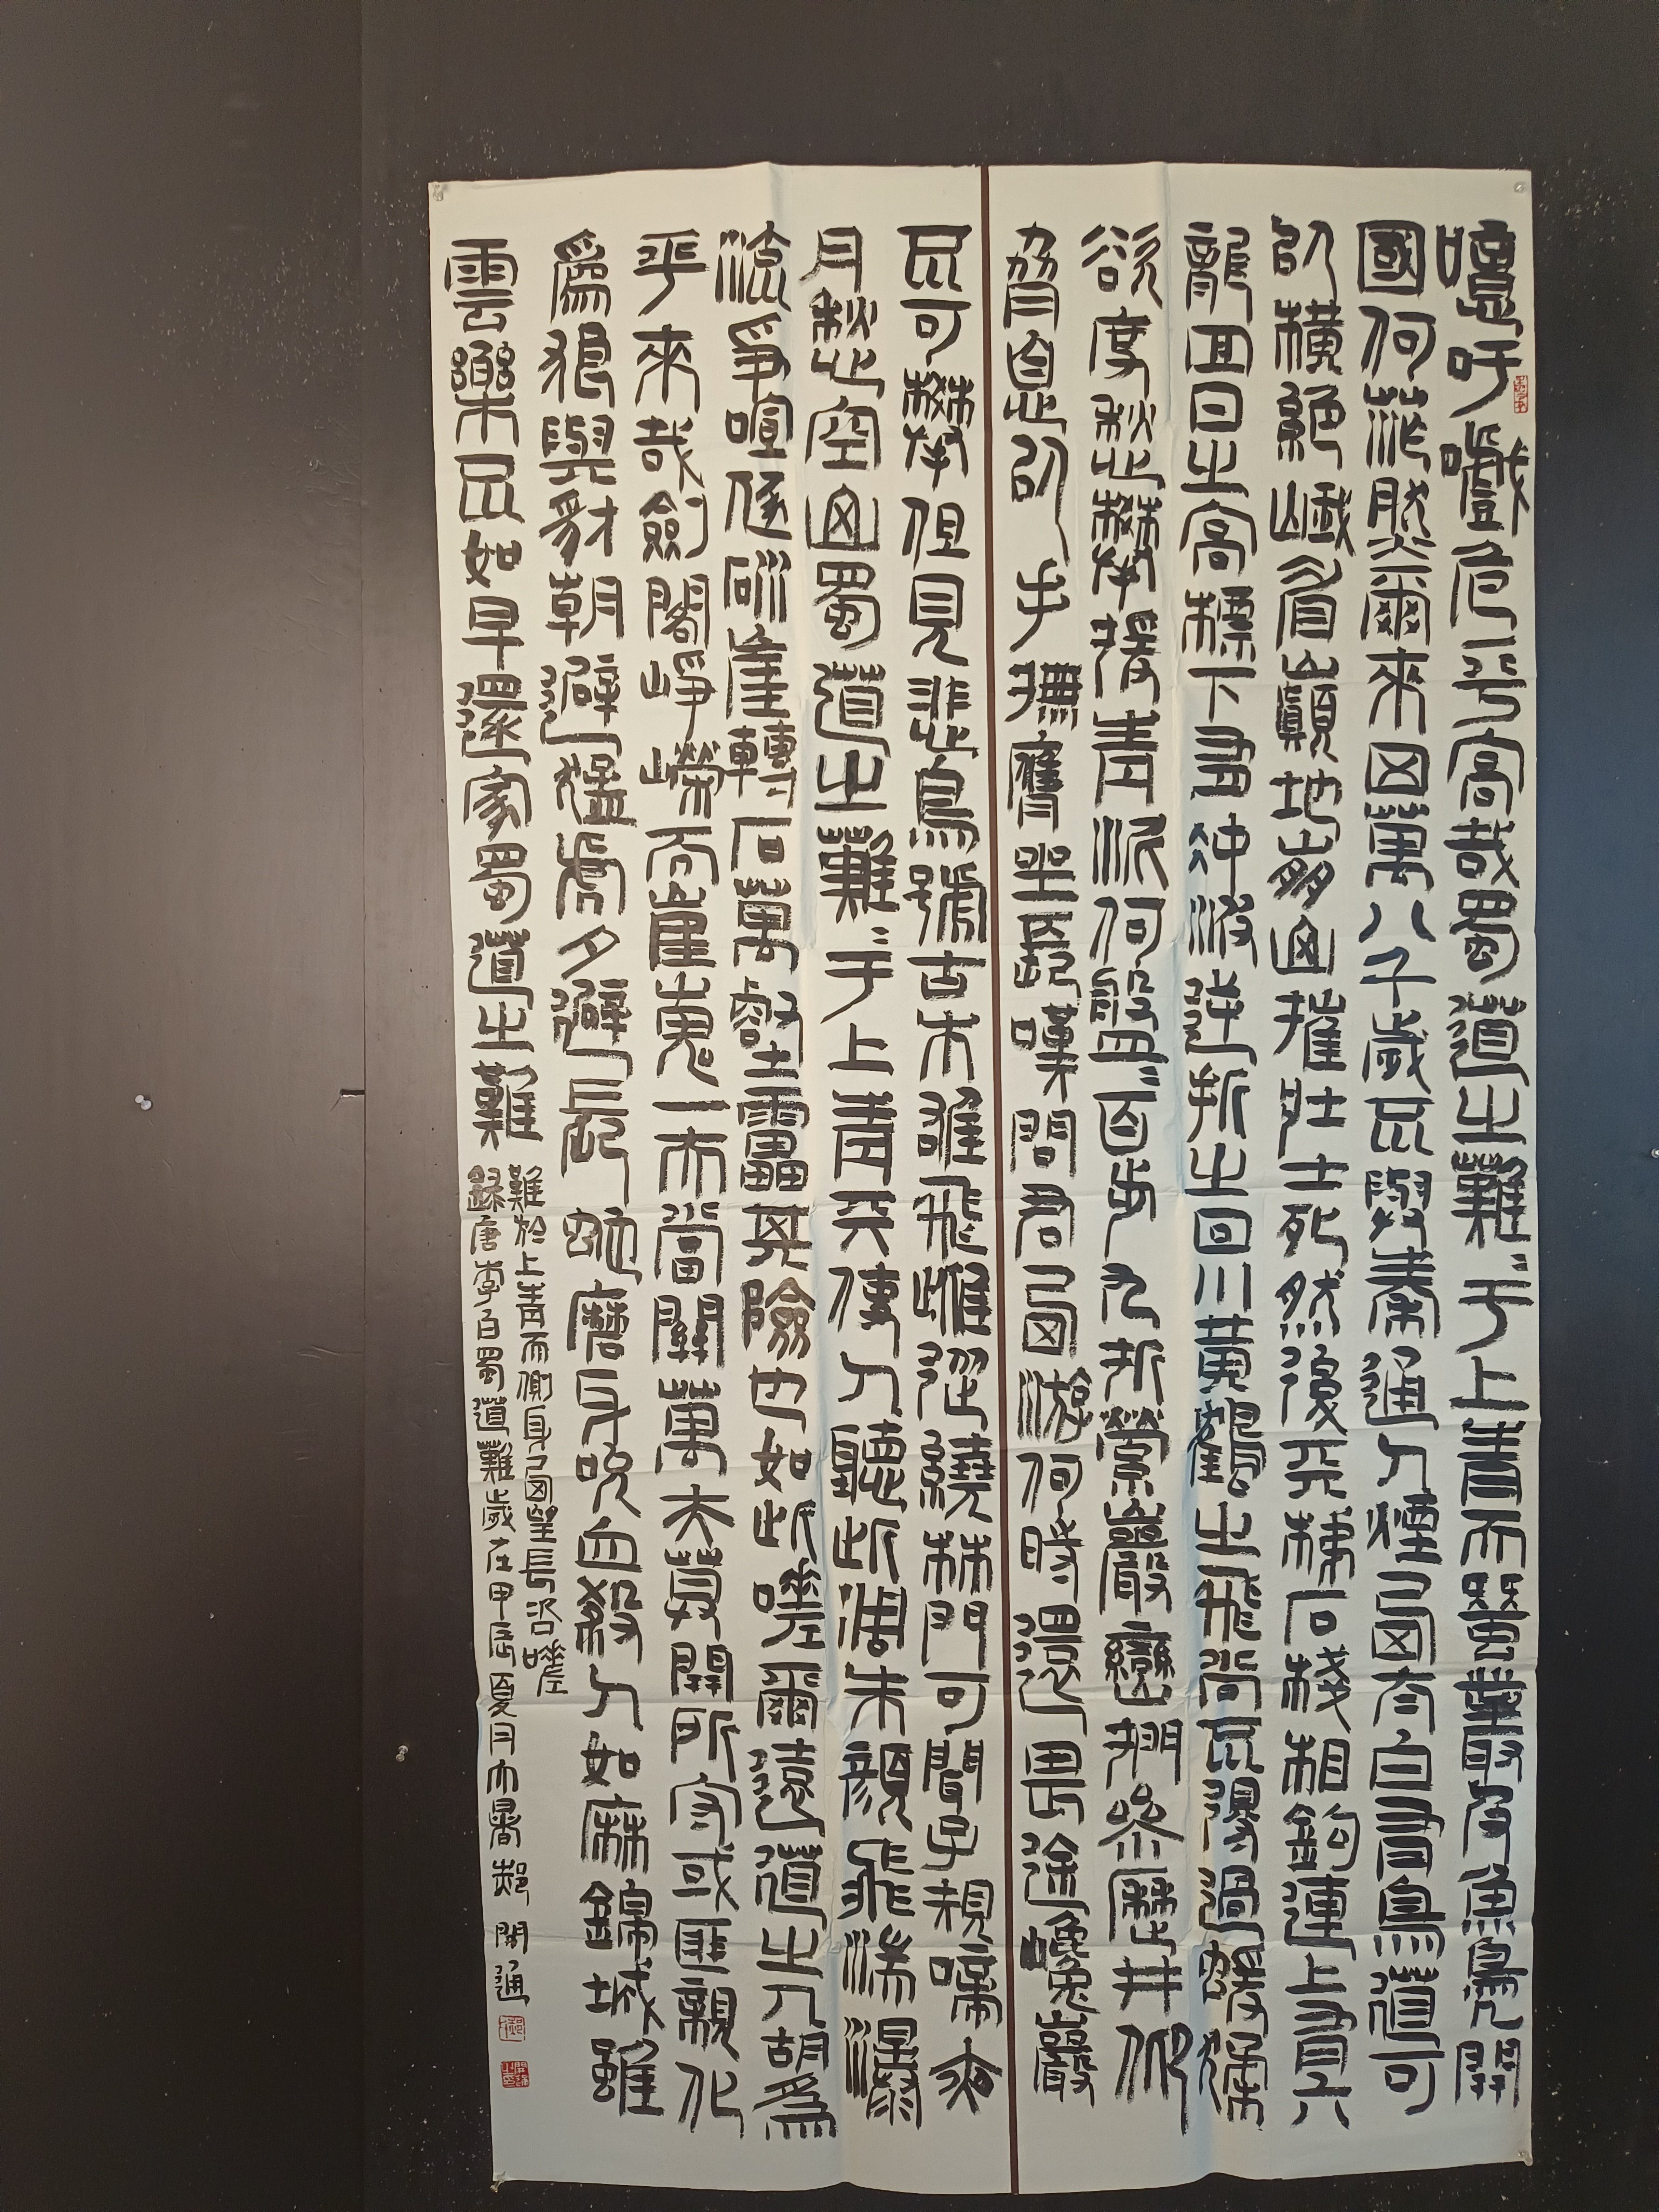 噫吁戲危乎高哉蜀道之難〻于上青天蠶叢及魚鳧開
國何茫然爾來四萬八千歲不與秦通人煙西太白有鳥道可
以橫絕峨眉巔地崩山摧壯士死然後天梯石棧相鉤連上有六
龍回日之高標下有沖波逆折之回川黃鶴之飛尚不得過猨猱
欲度愁攀援青泥何盤〻百步九折縈巖巒捫參歷井仰
脅息以手撫膺坐長嘆問君西游何時還畏途巉巖
不可攀但見悲鳥號古木雄飛雌從繞林間可聞子規啼夜
月愁空山蜀道之難〻于上青天使人聽此凋朱顏飛湍瀑
流爭喧豗砯崖轉石萬壑雷其險也如此嗟爾遠道之人胡爲
乎來哉劍閣崢嶸而崔嵬一夫當關萬夫莫開所守或匪親化
爲狼與豺朝避猛虎夕避長蛇磨牙吮血殺人如麻錦城雖
雲樂不如早還家蜀道之難
難於上青天側身西望長咨嗟
錄唐李白蜀道難歲在甲辰夏月大暑郝開通